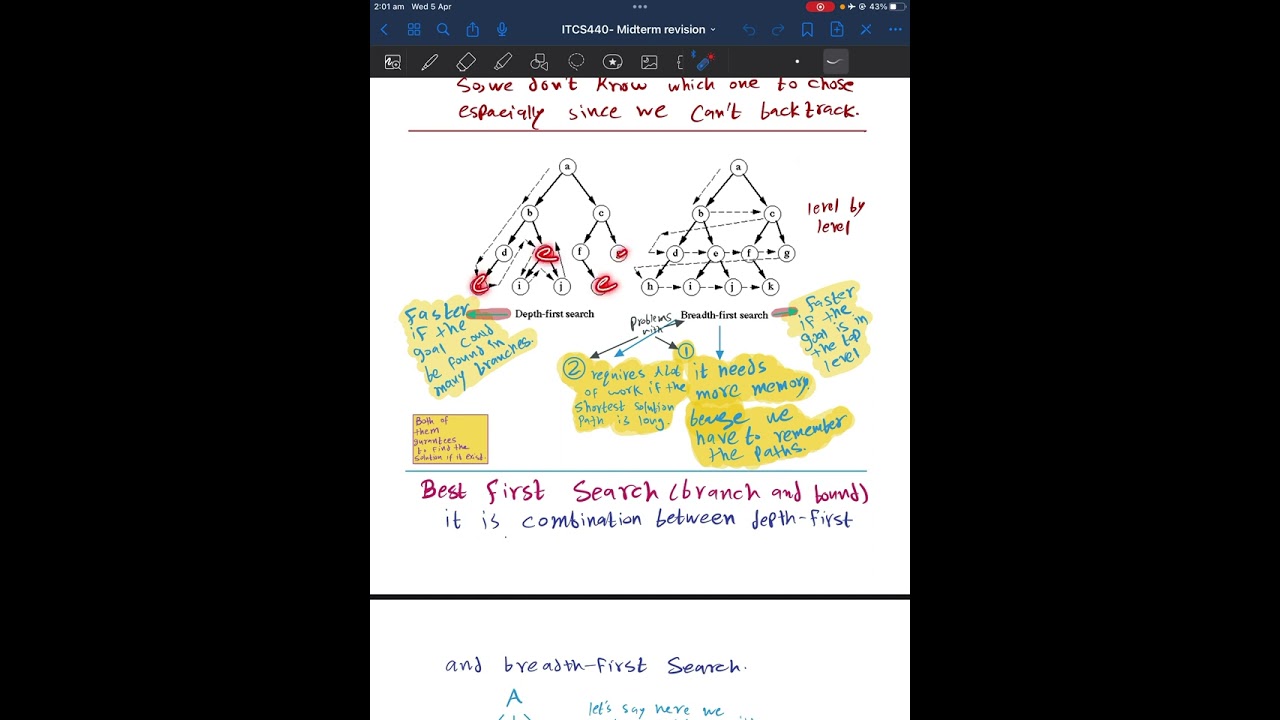 2:01 am Wed 5 Apr
43%
ITCS440- Midterm revision
So, we don't know which one to chose
espacially since we can't backtrack.
a
b
c
d
f
i
j
a
b
c
d
e
f
g
h
i
j
k
level by
level
Depth-first search
Breadth-first search
Faster
if the
goal could
be found in
many branches.
Problems
with
Faster
if the
goal is in
the top
level
2
requires a lot
of work if the
shortest solution
path is long.
1
it needs
more memory.
because we
have to remember
the paths.
Both of
them
gurantees
to find the
solution if it exist.
Best first Search (branch and bound)
it is combination between depth-first
and breadth-first search.
A
let's say here we